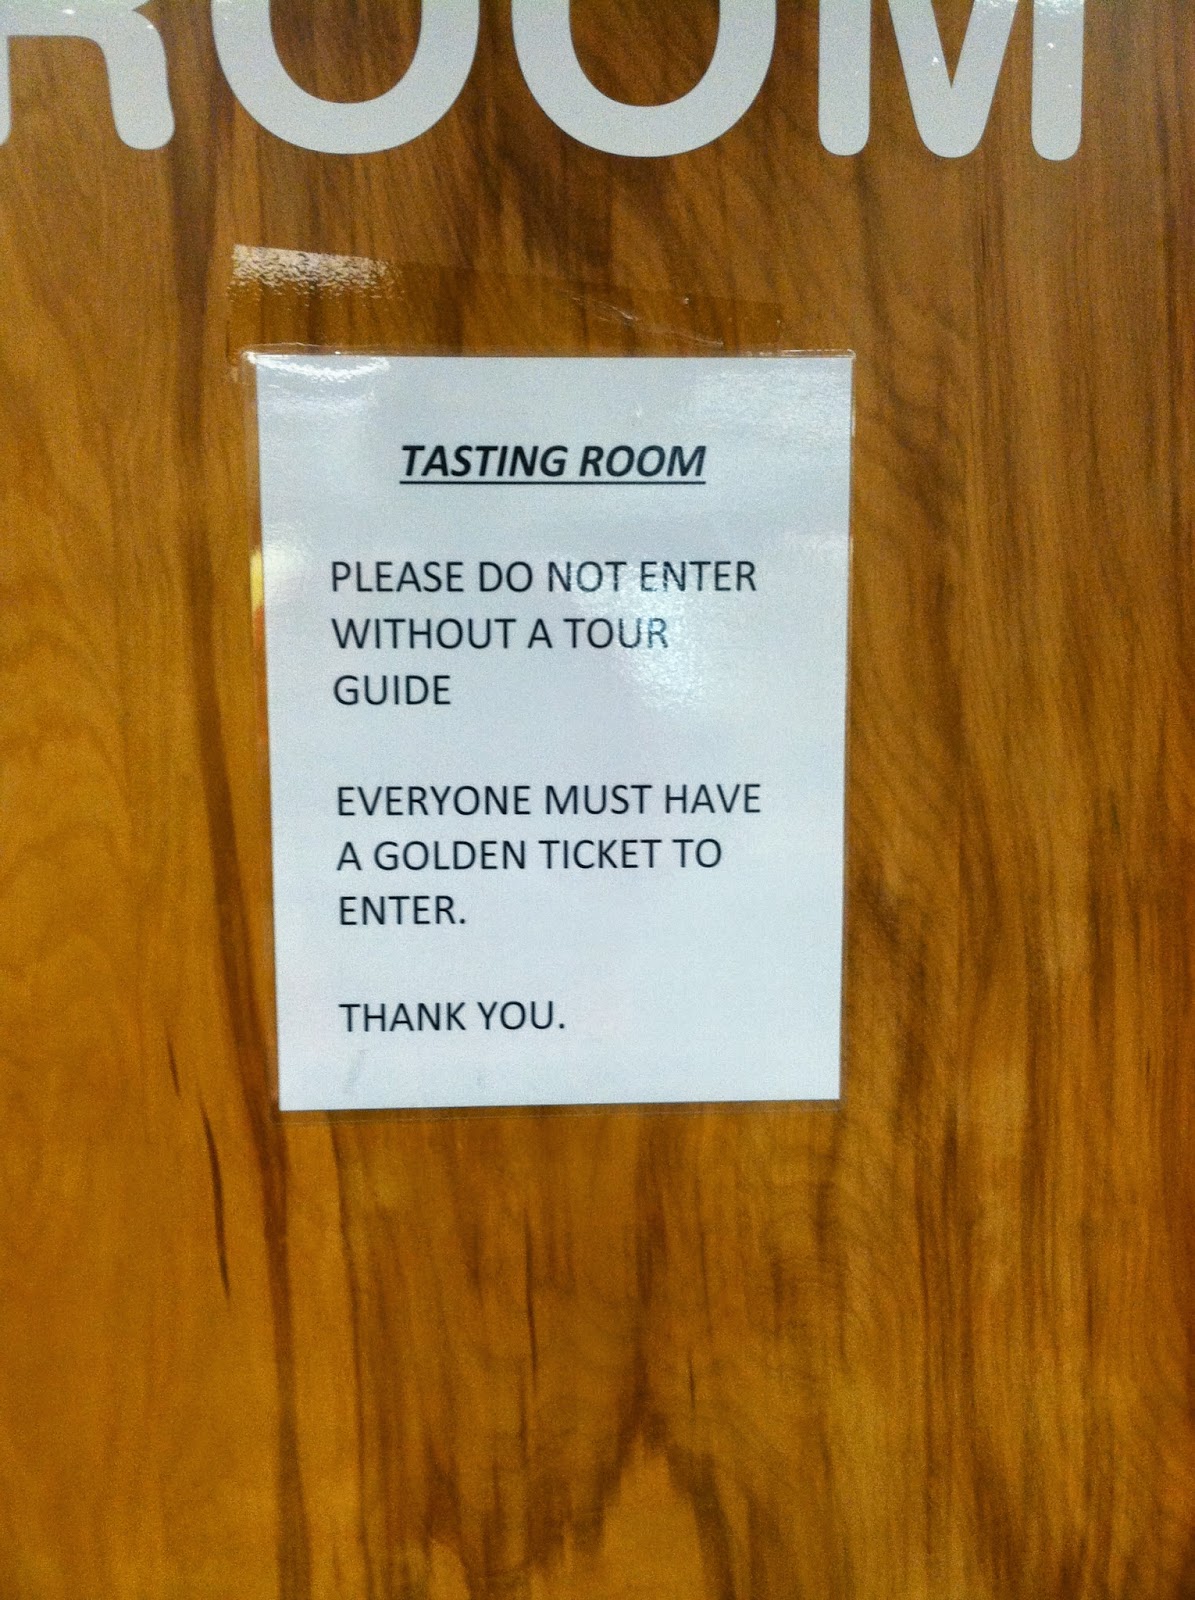 ROOM
TASTING ROOM
PLEASE DO NOT ENTER
WITHOUT A TOUR
GUIDE
EVERYONE MUST HAVE
A GOLDEN TICKET TO
ENTER.
THANK YOU.